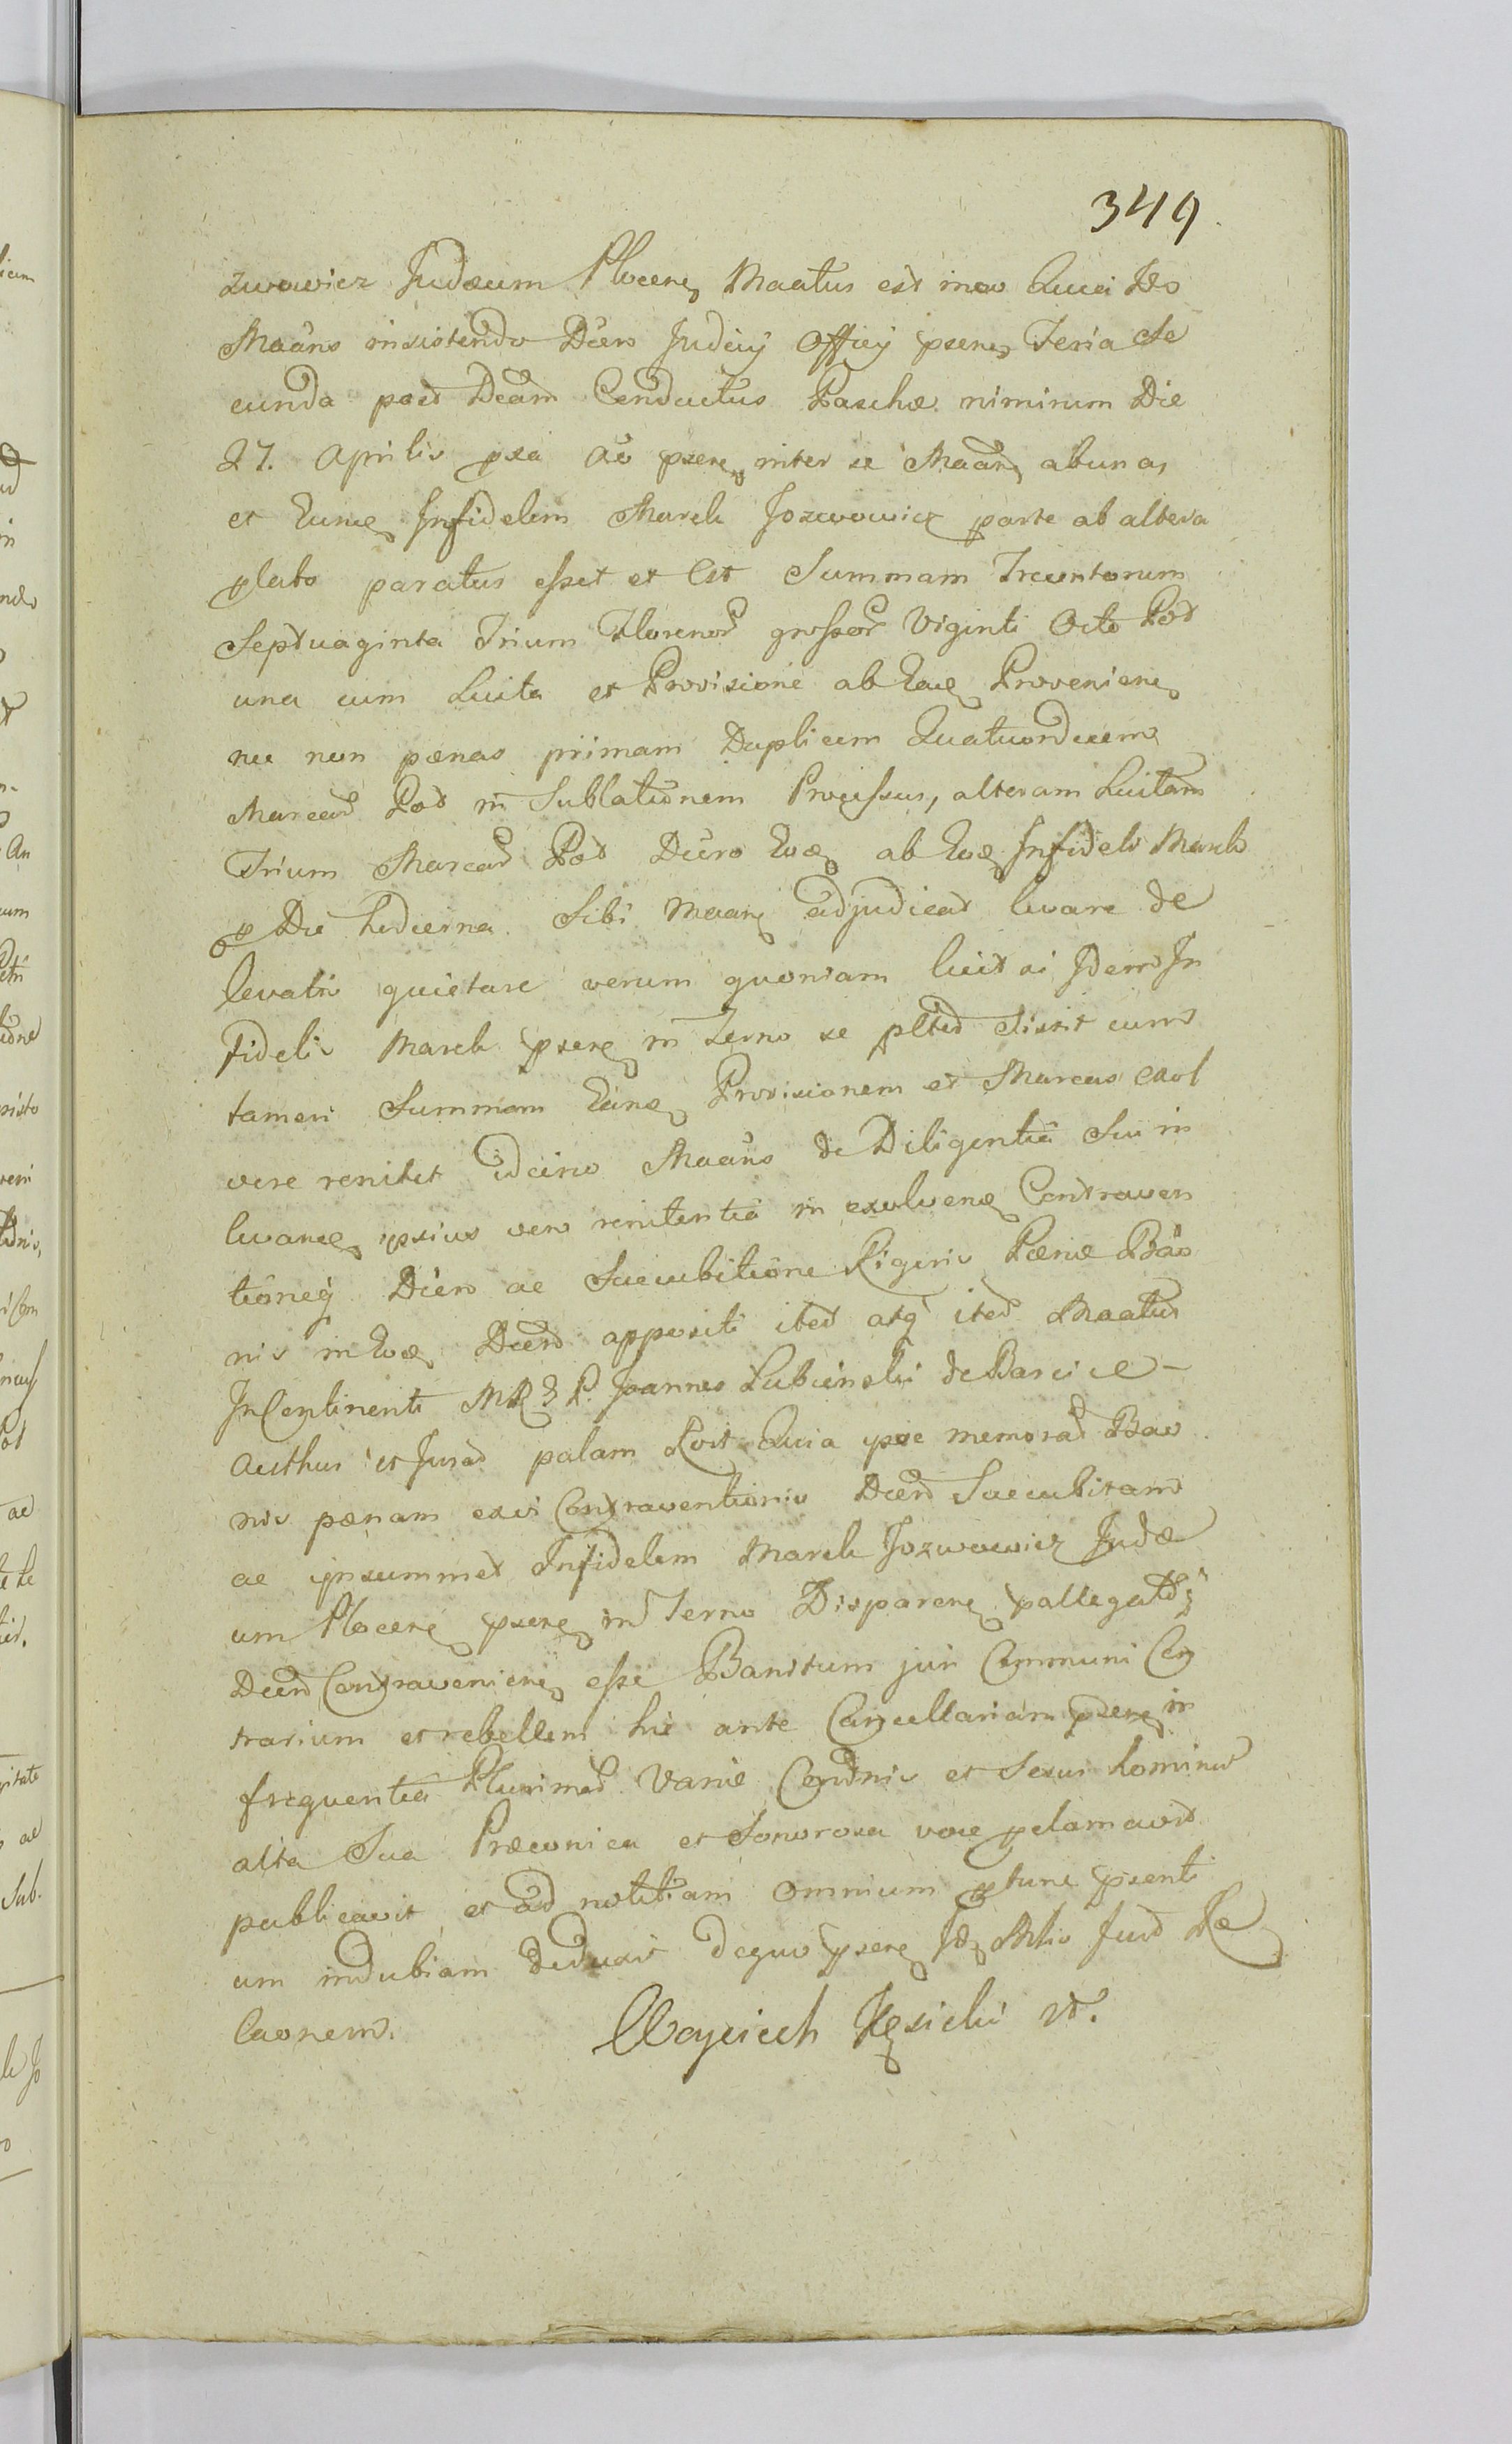 349.
zwowicz Judæum Plocens Maatus est in eo Quia Ido
Maans insistendo Dcro Judicij Officij psens Feria Se
cunda post Dcam Conductus Paschæ nimirum Die
27. Aprilis pxa Ao psens inter se Maans ab una
et Eunc Infidelem Marek Jozwowicz parte ab altera
plato paratus esset et Est Summam Trecentorum
Septuaginta Trium Florenor grossor Viginti Octo Pol
una cum Luita et Provisione ab Eac Proveniens
nec non pænas primam Duplicem Quatuordecem
Marcar Pol in Sublationem Processus, alteram Luitam
Trium Marcar Pol Dcro Eoq ab Eoq Infideli Marek
p Die hodierna Sibi Maans adjudicat levare de
levatis quietare verum quoniam licet ai Idem In
fidelis Marek psens in Terno se pltd Sistit eum
tamen Summam Eanq Provisionem et Marcas exol
vere renitet idcirco Maans de Diligentia Sui in
levanc ipsius vero renitentia in exolvenc Contraven
tioneq Dcro ac Succubitione Rigoris Pænæ Bao
nis in Eoq Dcrd appositi ited atq ited Maatus
In Continenti MRP. Joannes Lubienski de Barcice
Authus et Jurad palam Rcit Quia ipse memorad Bao
nis pænam exvi Contraventionis Dcrd Succubitam
ac ipsummet Infidelem Marek Jozwowicz Judæ
um Plocens psens in Terno Disparens pallegatoq
Dcrd Contraveniens esse Banitum juri Communi Con
trarium et rebellem hic ante Cancellariam psens in
frequentia Plurimar Variæ Condnis et Sexus hominu
alta Sua Præconica et Sonorosa voce pclamavit
publicavit et ad notitiam Omnium ptunc psenti
um indubiam Deduxit Dequo psens Id Mlis fecit Re
laonem.
Woyciech Kęsicki